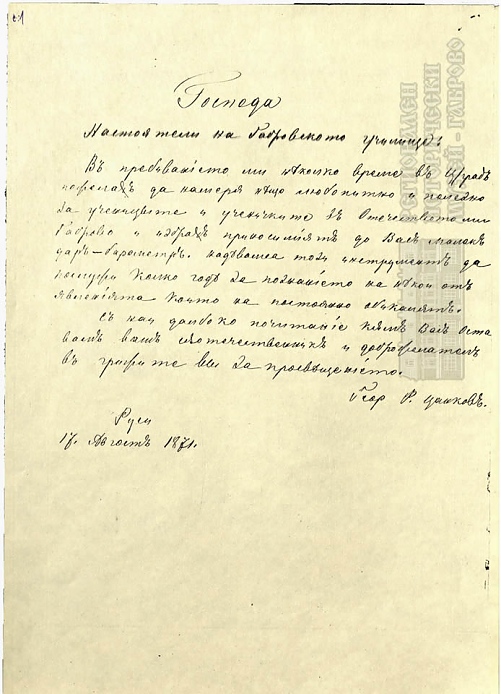 Господа
Настоятели на Габровското училище!
Въ пребываніето ми нѣколко време въ Ц/градъ
пожелахъ да намеря нѣщо любопитно и полезно
за ученицыте и ученичките въ Отечествоми
Габрово и избрахъ приносимиятъ до Васъ малакъ
даръ-барометръ. надѣваяса този инструментъ да
послужи колко годѣ за познаніето на нѣкои отъ
явленіята които на постоянно обикалятъ.
Съ най дълбоко почитаніе къмъ Васъ оста
вамъ вашъ съотечественникъ и доброжелателъ
въ грижите ви за просвѣщеніето.
Геор Р. Цанковъ.
Русе
17. Августъ 1871.
ИСТОРИЧЕСКИ
МУЗЕЙ - ГАБРОВО